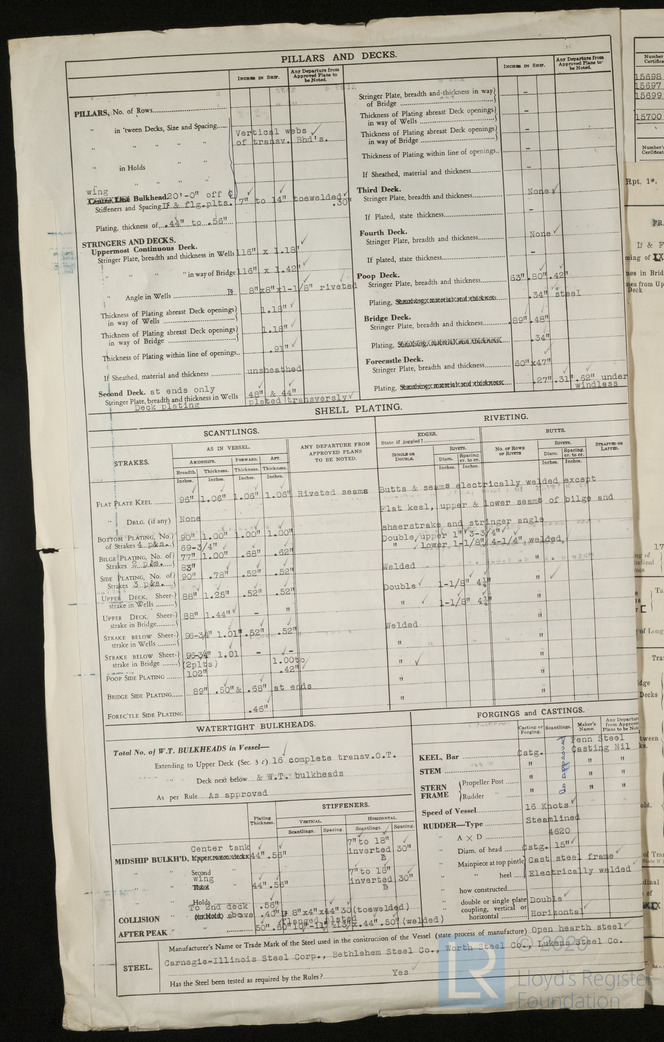 PILLARS AND DECKS.
INCHES IN SHIP.
Any Departure from Approved Plans to be Noted.
PILLARS, No. of Rows
" in 'tween Decks, Size and Spacing
Vertical webs
of transv. Bhd's.
" in Holds
wing
Centre Line Bulkhead 20'-0" off
Stiffeners and Spacing & flg.plts. 7" to 14" toewelded .30"
Plating, thickness of .44" to .56"
STRINGERS AND DECKS.
Uppermost Continuous Deck.
Stringer Plate, breadth and thickness in Wells 116" x 1.18"
" " " in way of Bridge 116" x 1.42"
" Angle in Wells 8"x8"x1-1/8" riveted
Thickness of Plating abreast Deck openings in way of Wells 1.18"
Thickness of Plating abreast Deck openings in way of Bridge 1.18"
Thickness of Plating within line of openings .91"
If Sheathed, material and thickness unsheathed
Second Deck. at ends only
Stringer Plate, breadth and thickness in Wells 48" & 44"
Deck plating plated transversly
INCHES IN SHIP.
Any Departure from Approved Plans to be Noted.
Stringer Plate, breadth and thickness in way of Bridge -
Thickness of Plating abreast Deck openings in way of Wells -
Thickness of Plating abreast Deck openings in way of Bridge -
Thickness of Plating within line of openings -
If Sheathed, material and thickness -
Third Deck.
Stringer Plate, breadth and thickness None
If Plated, state thickness -
Fourth Deck.
Stringer Plate, breadth and thickness None
If plated, state thickness -
Poop Deck.
Stringer Plate, breadth and thickness 63" .80" .42"
Plating, Sheathing, material and thickness .34" steel
Bridge Deck.
Stringer Plate, breadth and thickness 89" .48"
Plating, Sheathing, material and thickness .34"
Forecastle Deck.
Stringer Plate, breadth and thickness 60"x47"
Plating, Sheathing, material and thickness .27" .31" .62" under
windlass
SHELL PLATING.
SCANTLINGS.
RIVETING.
STRAKES.
AS IN VESSEL.
AMIDSHIPS. FORWARD. AFT.
Breadth. Thickness. Thickness. Thickness.
Inches. Inches. Inches. Inches.
ANY DEPARTURE FROM APPROVED PLANS TO BE NOTED.
EDGES.
State if joggled?
SINGLE OR DOUBLE.
RIVETS.
Diam. Spacing cr. to cr.
Inches. Inches.
BUTTS.
No. OF ROWS OF RIVETS
RIVETS.
Diam. Spacing cr. to cr.
Inches. Inches.
STRAPPED OR LAPPED.
FLAT PLATE KEEL 96" 1.06" 1.06" 1.06" Riveted seams
Butts & seams electrically welded except
Flat keel, upper & lower seams of bilge and
sheerstrake and stringer angle
" DBLG. (if any) None
BOTTOM PLATING, No. of Strakes 4 p&s. 90" 1.00" 1.00" 1.00" Double/upper 1" 3-3/4"
69-3/4" " lower 1-1/8" 4-1/4" welded
BILGE PLATING, No. of Strakes 2 p&s. 77" 1.00" .68" .62"
83" Welded "
SIDE PLATING, No. of Strakes 3 p&s. 90" .78" .52" .52"
UPPER DECK, Sheerstrake in Wells 88" 1.25" .52" .52" Double 1-1/8" 4¼ "
UPPER DECK, Sheerstrake in Bridge 88" 1.44" - " " 1-1/8" 4¼ "
STRAKE BELOW Sheerstrake in Wells 96-3/4" 1.01" .52" .52" Welded "
STRAKE BELOW Sheerstrake in Bridge 96-3/4" 1.01 - - "
(2plts) 1.00to
POOP SIDE PLATING 102" .42" " "
BRIDGE SIDE PLATING 89" .50"& .68" at ends "
FOREC'TLE SIDE PLATING .46" "
WATERTIGHT BULKHEADS.
Total No. of W.T. BULKHEADS in Vessel—
Extending to Upper Deck (Sec. 3 c) 16 complete transv.O.T.
" Deck next below & W.T. bulkheads
As per Rule As approved
Plating Thickness.
STIFFENERS.
VERTICAL. HORIZONTAL.
Scantlings. Spacing. Scantlings. Spacing.
MIDSHIP BULKH'D. Center tank .44" .56" 7"to 18" inverted 30"
" Second
wing
" Third .44" .56" 7"to 18" inverted 30"
" Holds .56"
COLLISION To 2nd deck above .40" 8"x4"x44"30(toewelded)
flanged plated
AFTER PEAK
FORGINGS and CASTINGS.
Casting or Forging. Scantlings. Maker's Name
Any Departure from Approved Plans to be Noted
as approved
KEEL, Bar Cstg. Penn Steel
Casting Mil
STEM " " "
STERN FRAME Propeller Post " " "
Rudder " " "
Speed of Vessel 16 Knots
RUDDER—Type Steamlined
" A X D 4620
" Diam. of head Cstg. 15"
" Mainpiece at top pintle Cast steel frame
" " heel Electrically welded
" how constructed "
" double or single plate Double
" coupling, vertical or horizontal Horizontal
STEEL.
Manufacturer's Name or Trade Mark of the Steel used in the construction of the Vessel (state process of manufacture) Open hearth steel
Carnegie-Illinois Steel Corp., Bethlehem Steel Co., Worth Steel Co., Lukens Steel Co.
Has the Steel been tested as required by the Rules? Yes
LR
© 2020
Lloyd's Register
Foundation
Number
Certifica
15698
15697
15699
15700
Number's
Certificat
Rpt. 1*.